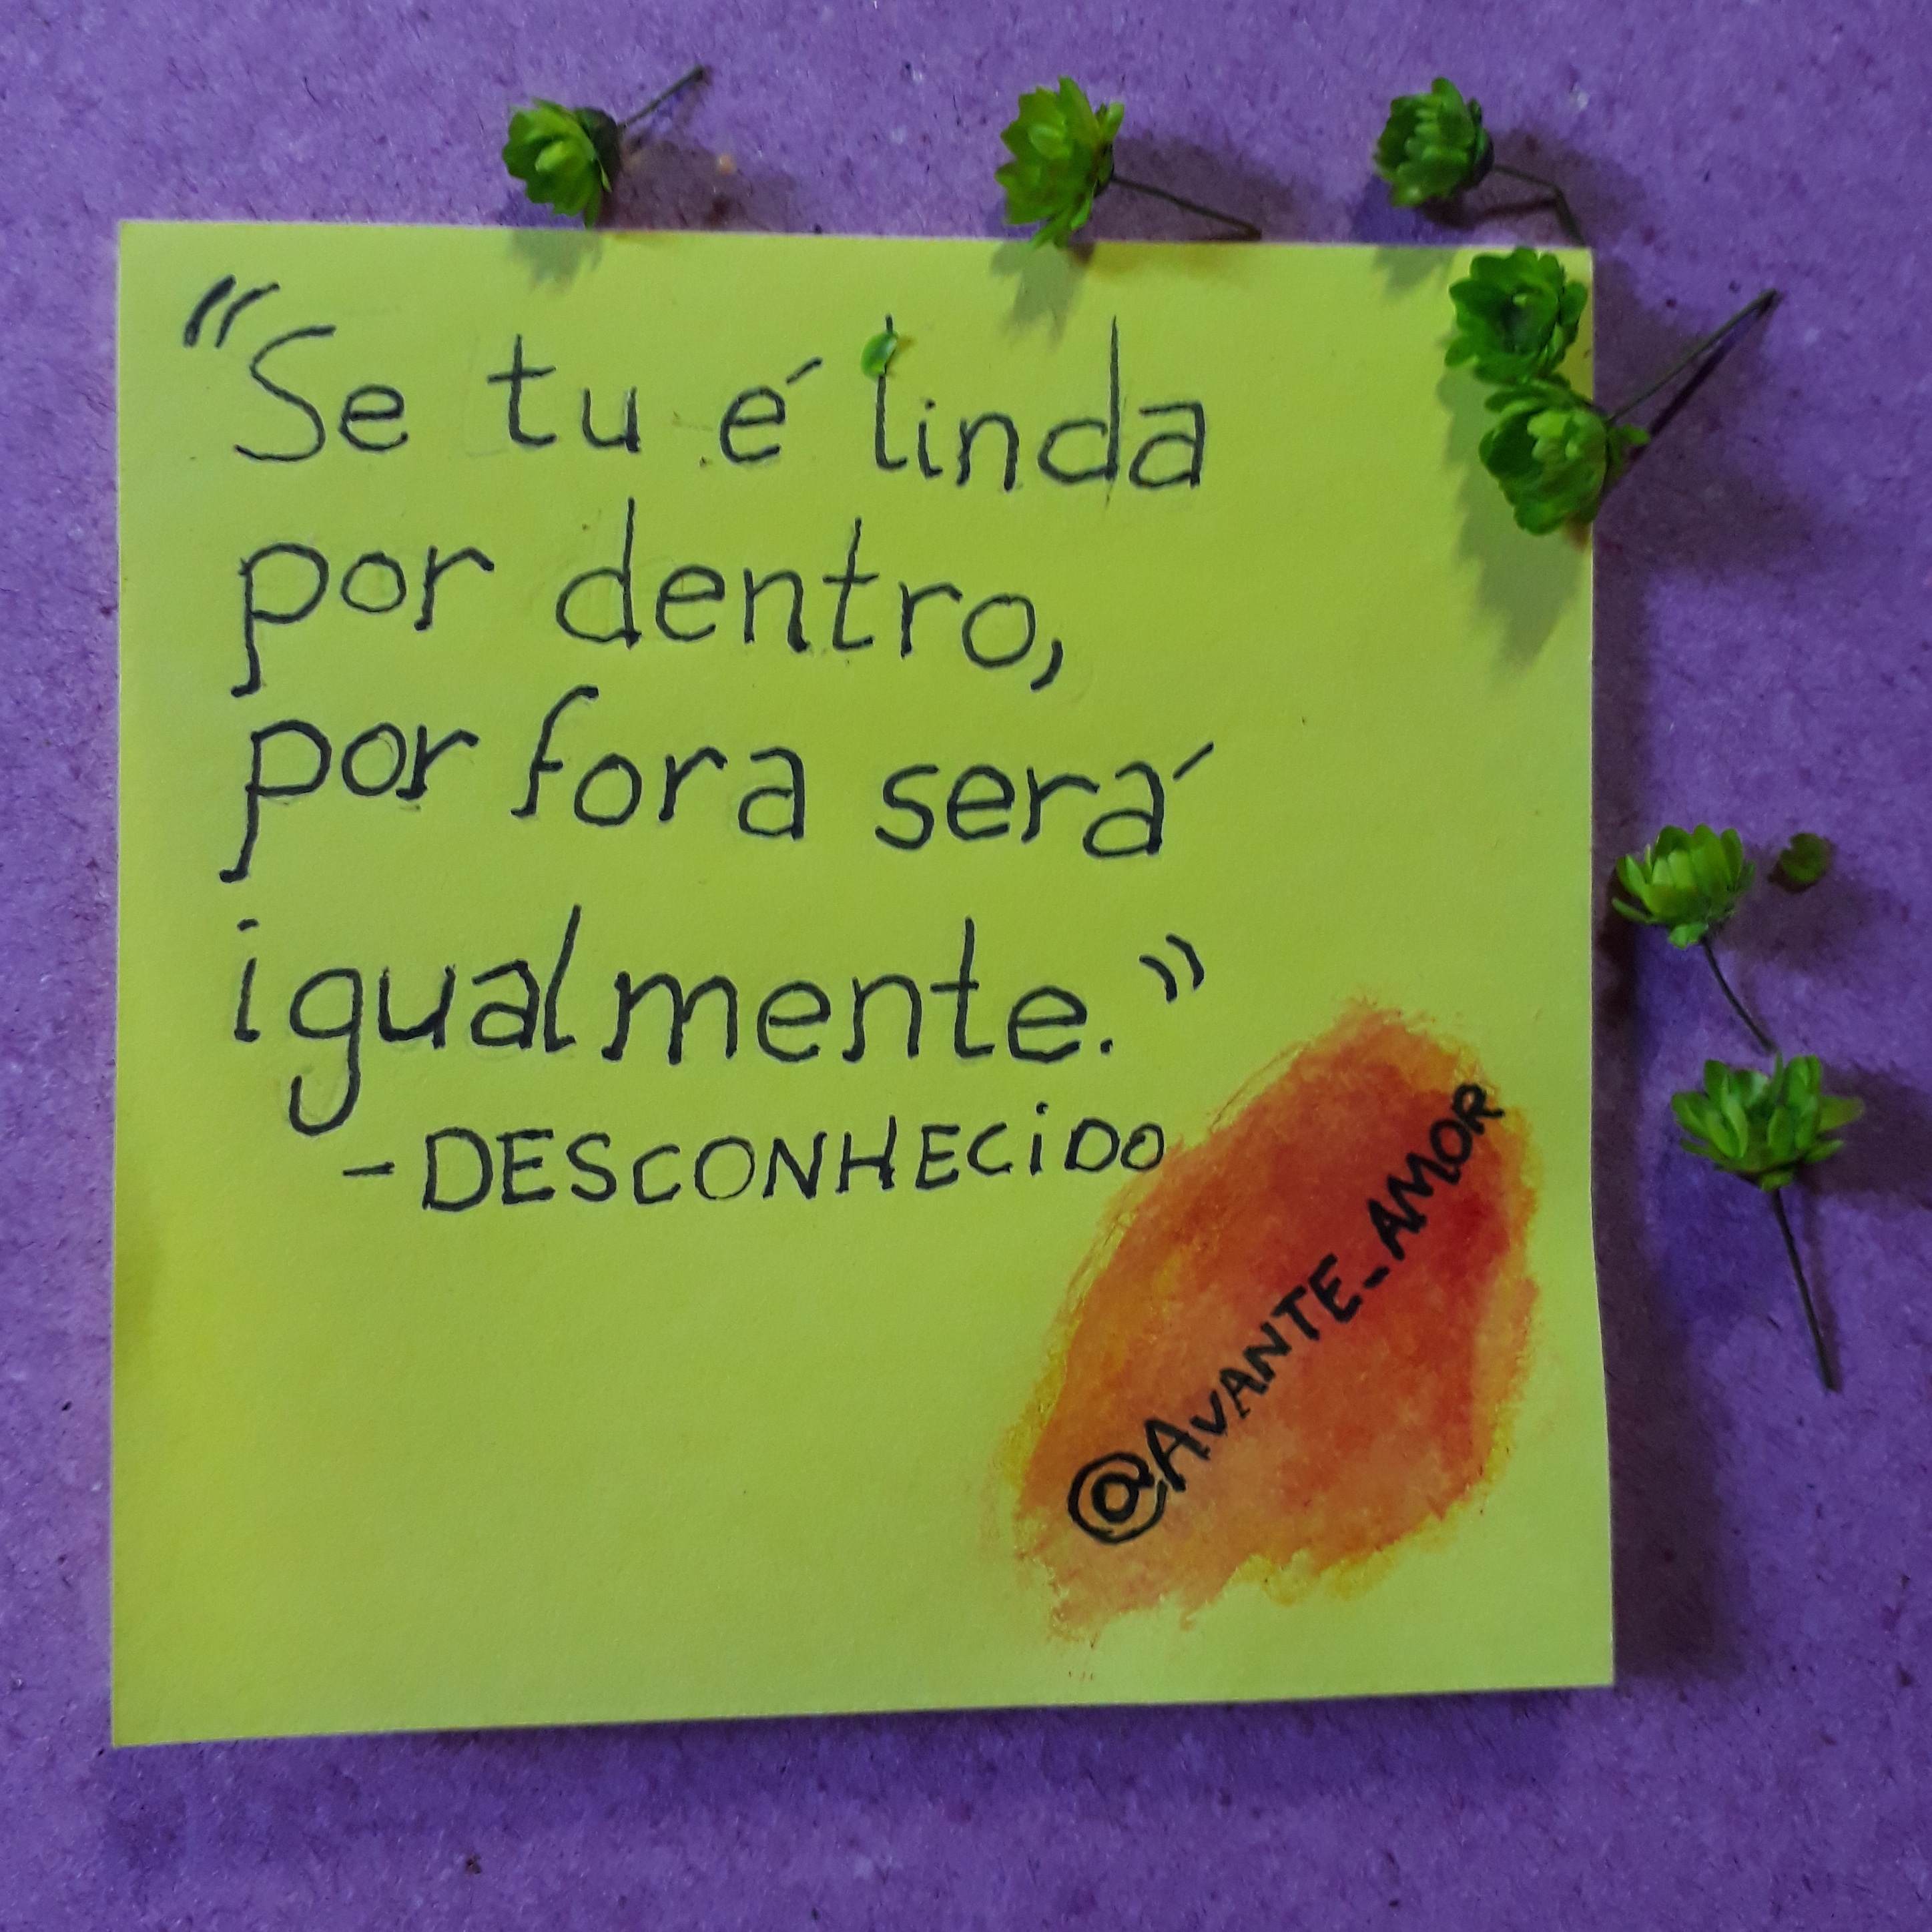 "Se tu é linda
por dentro,
por fora será
igualmente."
- DESCONHECiDO
@AVANTE_AMOR